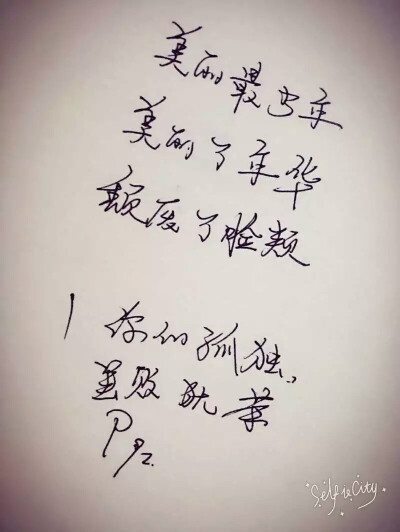 美的最当年
美的了年华
颓废了脸颊
你的孤独,
虽败犹荣
Selfie City